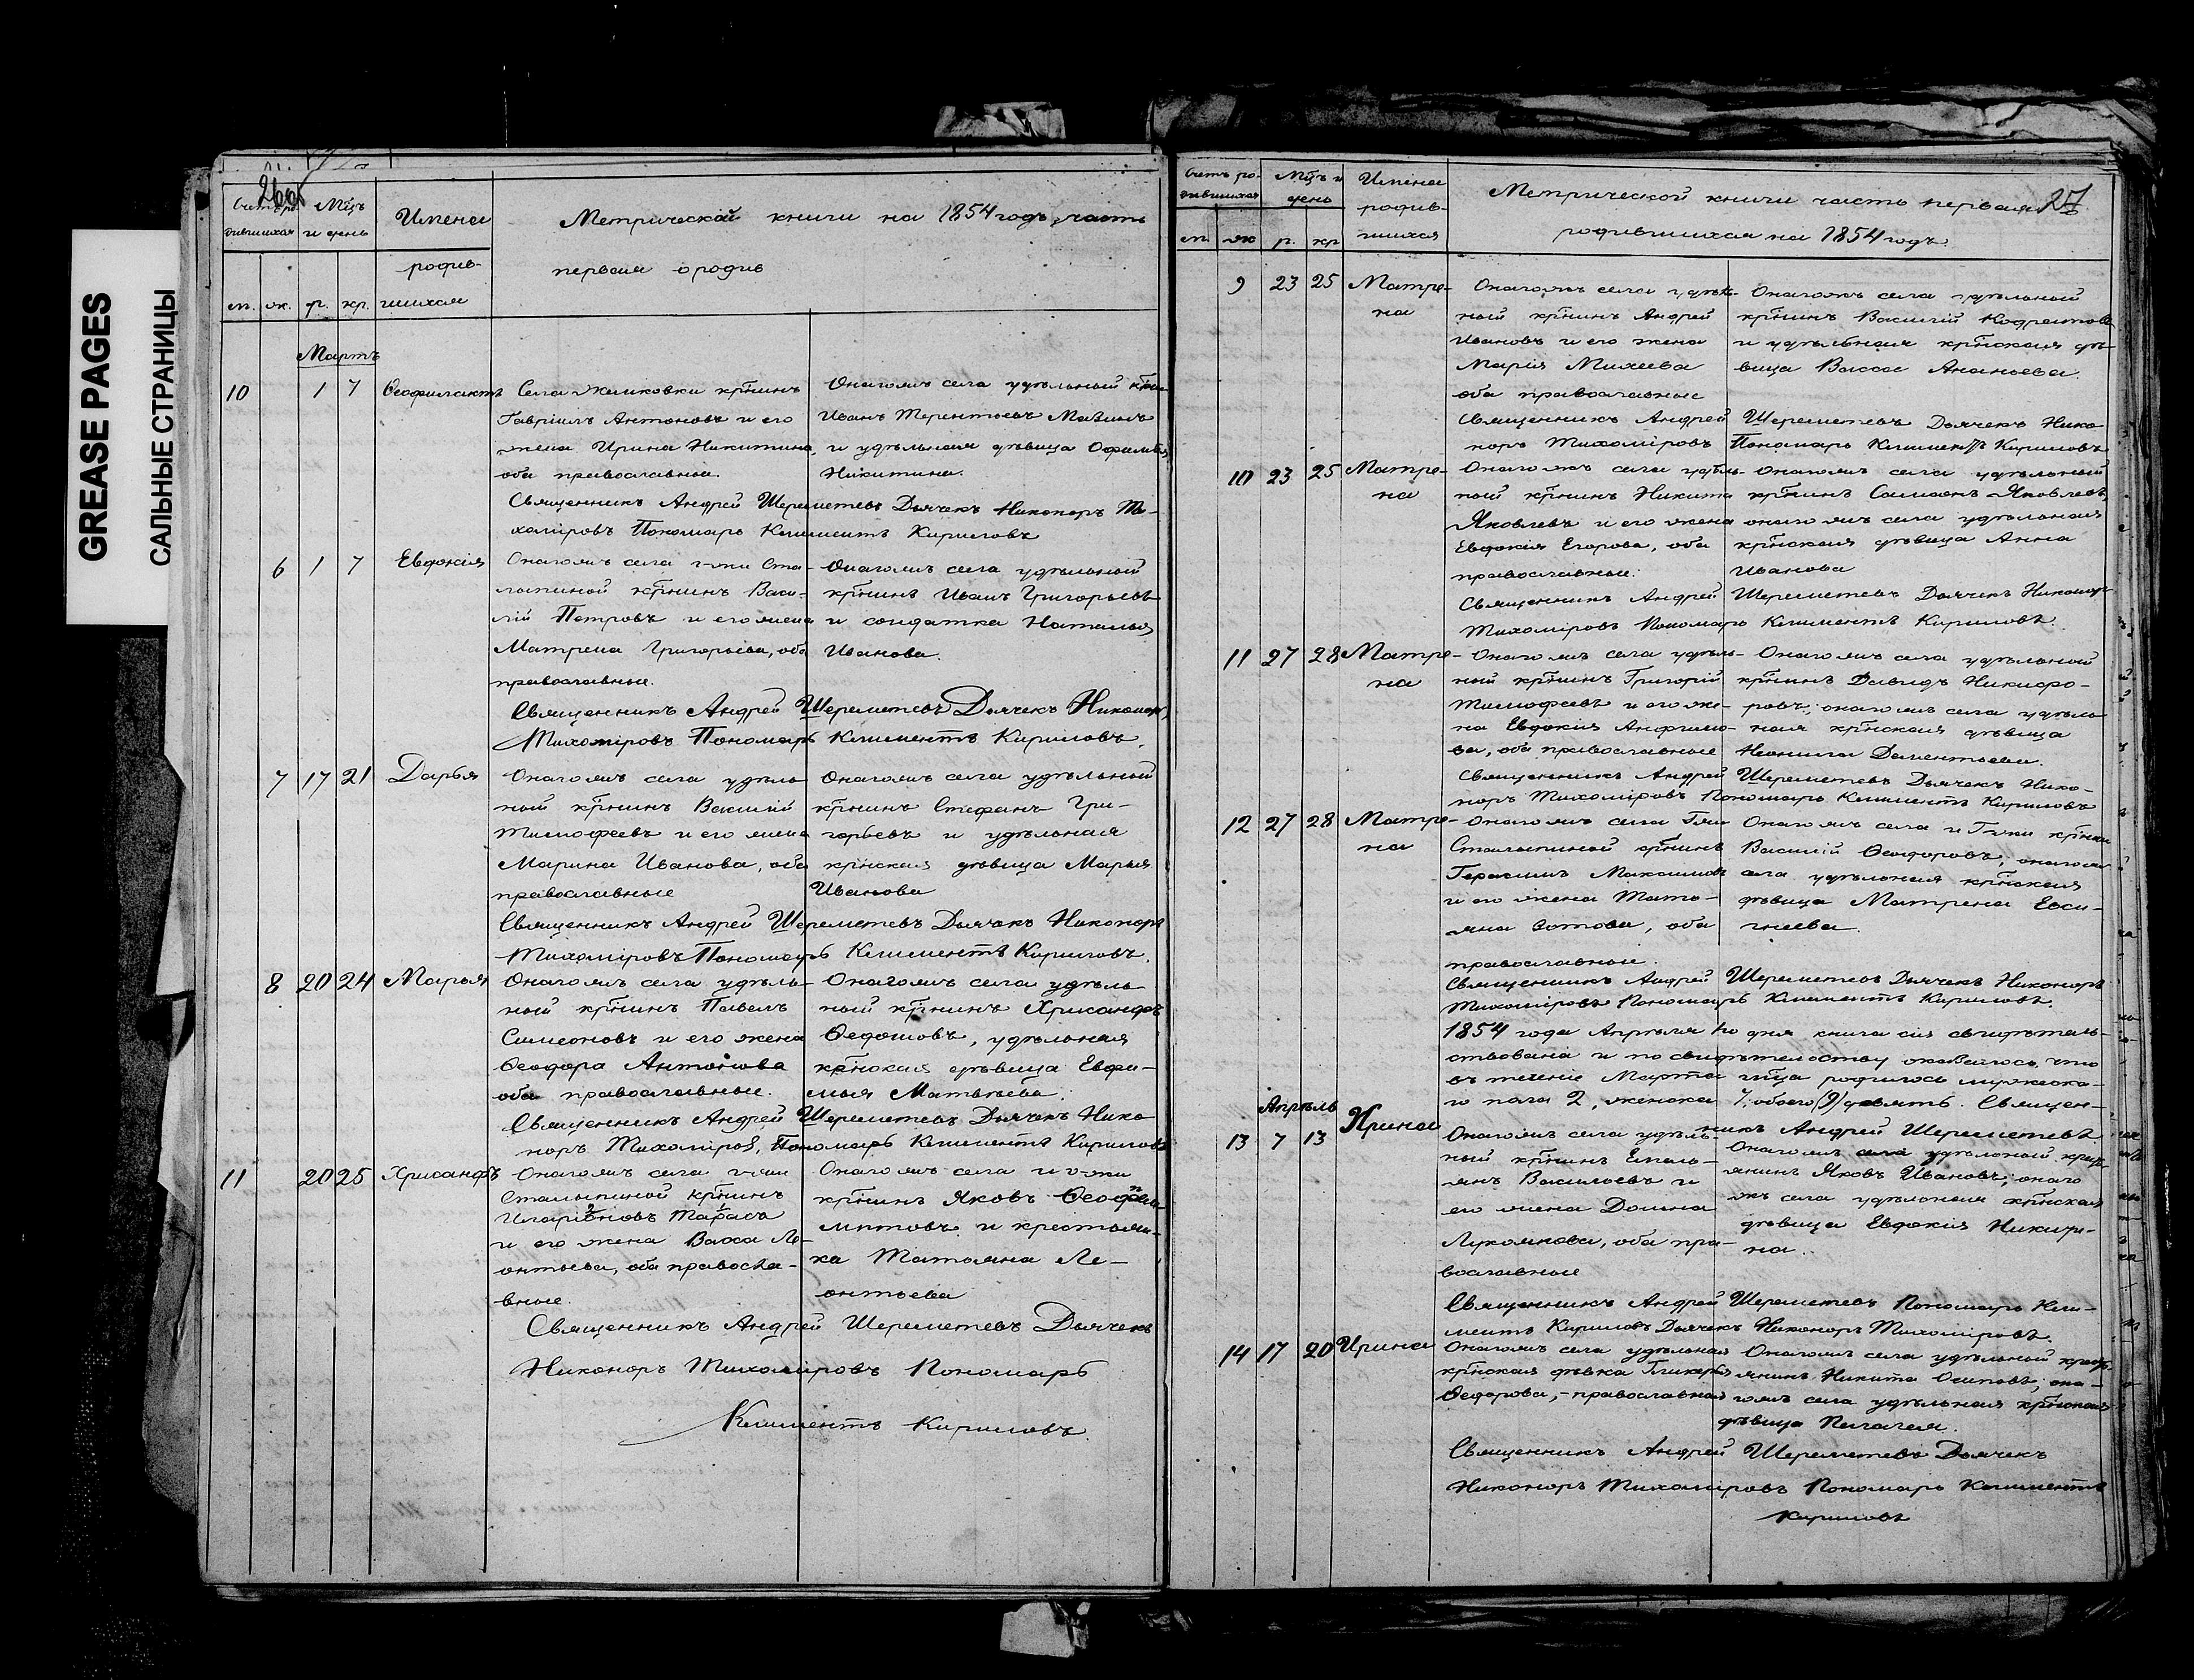 GREASE PAGES
САЛЬНЫЕ СТРАНИЦЫ
26об
Счетъ ро-
дившихся
Мѣцъ
и день
Имена
родив-
шихся
м. ж. р. кр.
Метрической книги на 1854 годъ, часть
первая о родив
Мартъ
10 1 7 Ѳеофилактъ
Села Жемковки кр̃нинъ
Гавріилъ Антоновъ и его
жена Ирина Никитина,
оба православные.
Онагожъ села удѣльный
Иванъ Терентьевъ Мазинъ
и удѣльная дѣвица
Никитина.
Священникъ Андрей Шереметевъ Дьячекъ Никоноръ Ти-
хоміровъ Пономарь Климентъ Кириловъ
6 1 7 Евдокія
Онагожъ села г-жи Ста-
лыпиной кр̃нинъ Васи-
лій Петровъ и его жена
Матрена Григорьева, оба
православные.
Онагожъ села удѣльный
кр̃нинъ Иванъ Григорьевъ
и солдатка Наталья
Иванова.
Священникъ Андрей Шереметевъ Дьячекъ Никоноръ
Тихоміровъ Пономарь Климентъ Кириловъ.
7 17 21 Дарья
Онагожъ села удѣль-
ный кр̃нинъ Василій
Тимофеевъ и его жена
Марина Иванова, оба
православные
Онагожъ села удѣльный
кр̃нинъ Стефанъ Гри-
горьевъ и удѣльная
кр̃нская дѣвица Марья
Иванова
Священникъ Андрей Шереметевъ Дьячекъ Никоноръ
Тихоміровъ Пономарь Климентъ Кириловъ.
8 20 24 Марья
Онагожъ села удѣль-
ный кр̃нинъ Павелъ
Симеоновъ и его жена
Ѳеодора Антонова
оба православные.
Онагожъ села удѣль
ный кр̃нинъ Хрисанфъ
Ѳедотовъ, удѣльная
кр̃нская дѣвица Евфи-
мья Матвѣева.
Священникъ Андрей Шереметевъ Дьячекъ Нико
норъ Тихоміровъ, Пономарь Климентъ Кириловъ
11 20 25 Хрисанфъ
Онагожъ села г-жи
Сталыпиной кр̃нинъ
Иларіоновъ Тарасъ
и его жена Васса Ле-
онтьева, оба правосла-
вные.
Онагожъ села и г-жи
кр̃нинъ Яковъ
и крестьян-
ка Татьяна Ле-
онтьева
Священникъ Андрей Шереметевъ Дьячекъ
Никоноръ Тихоміровъ Пономарь
Климентъ Кириловъ.
Счетъ ро-
дившихся
Мѣцъ и
день
Имена
родив-
шихся
м. ж р. кр
Метрической книги часть первая
27
родившихся на 1854 годъ
9 23 25 Матре-
на
Онагожъ села удѣль-
ный кр̃нинъ Андрей
Ивановъ и его жена
Марія Михеева
оба православные
Онагожъ села удѣльный
кр̃нинъ Василій
и удѣльная кр̃нская дѣ-
вица Васса Ананьева.
Священникъ Андрей Шереметевъ Дьячекъ Нико
норъ Тихоміровъ Пономарь Климентъ Кириловъ
10 23 25 Матре-
на
Онагожъ села удѣль-
ный кр̃нинъ Никита
Яковлевъ и его жена
Евдокія Егорова, оба
православные.
Онагожъ села удѣльный
кр̃нинъ Самсонъ Яковлевъ,
онагожъ села удѣльная
кр̃нская дѣвица Анна
Иванова
Священникъ Андрей Шереметевъ Дьячекъ Никоноръ
Тихоміровъ Пономарь Климентъ Кириловъ.
11 27 28 Матре-
на
Онагожъ села удѣль-
ный кр̃нинъ Григорій
Тимофеевъ и его же-
на Евдокія Анфимо-
ва, оба православные
Онагожъ села удѣльный
кр̃нинъ Давидъ Никифо-
ровъ, онагожъ села удѣль-
ная кр̃нская дѣвица
Неонила Дементьева.
Священникъ Андрей Шереметевъ Дьячекъ Нико-
норъ Тихоміровъ Пономарь Климентъ Кириловъ
12 27 28 Матре-
на
Онагожъ села Гжи
Сталыпиной кр̃нинъ
Герасимъ Максимовъ
и его жена Тать-
яна Зотова, оба
православные.
Онагожъ села и Гжи кр̃нинъ
Василій Ѳеодоровъ, онагожъ
села удѣльная кр̃нская
дѣвица Матрена Евси-
гнеева.
Священникъ Андрей Шереметевъ Дьячекъ Никоноръ
Тихоміровъ Пономарь Климентъ Кириловъ.
1854 года Апрѣля дня книга сія свидѣтель-
ствована и по свидѣтельству оказалось, что
въ теченіе Марта мѣца родилось мужеска-
го пола 2, женска 7, обоего (9) девять. Священ-
никъ Андрей Шереметевъ
Апрѣль
13 7 13 Ирина
Онагожъ села удѣль-
ный кр̃нинъ Емель-
янъ Васильевъ и
его жена Домна
Лукоянова, оба пра-
вославные
Онагожъ села удѣльный крест-
янинъ Яковъ Ивановъ, онаго
жъ села удѣльная кр̃нская
дѣвица Евдокія Никити-
на.
Священникъ Андрей Шереметевъ Пономарь Кли-
ментъ Кириловъ Дьячекъ Никоноръ Тихоміровъ.
14 17 20 Ирина
Онагожъ села удѣльная
кр̃нская дѣвка Гликерья
Ѳедорова, - православная
Онагожъ села удѣльный крест-
янинъ Никита Осиповъ, она-
гожъ села удѣльная кр̃нская
дѣвица Пелагея.
Священникъ Андрей Шереметевъ Дьячекъ
Никоноръ Тихоміровъ Пономарь Климентъ
Кириловъ